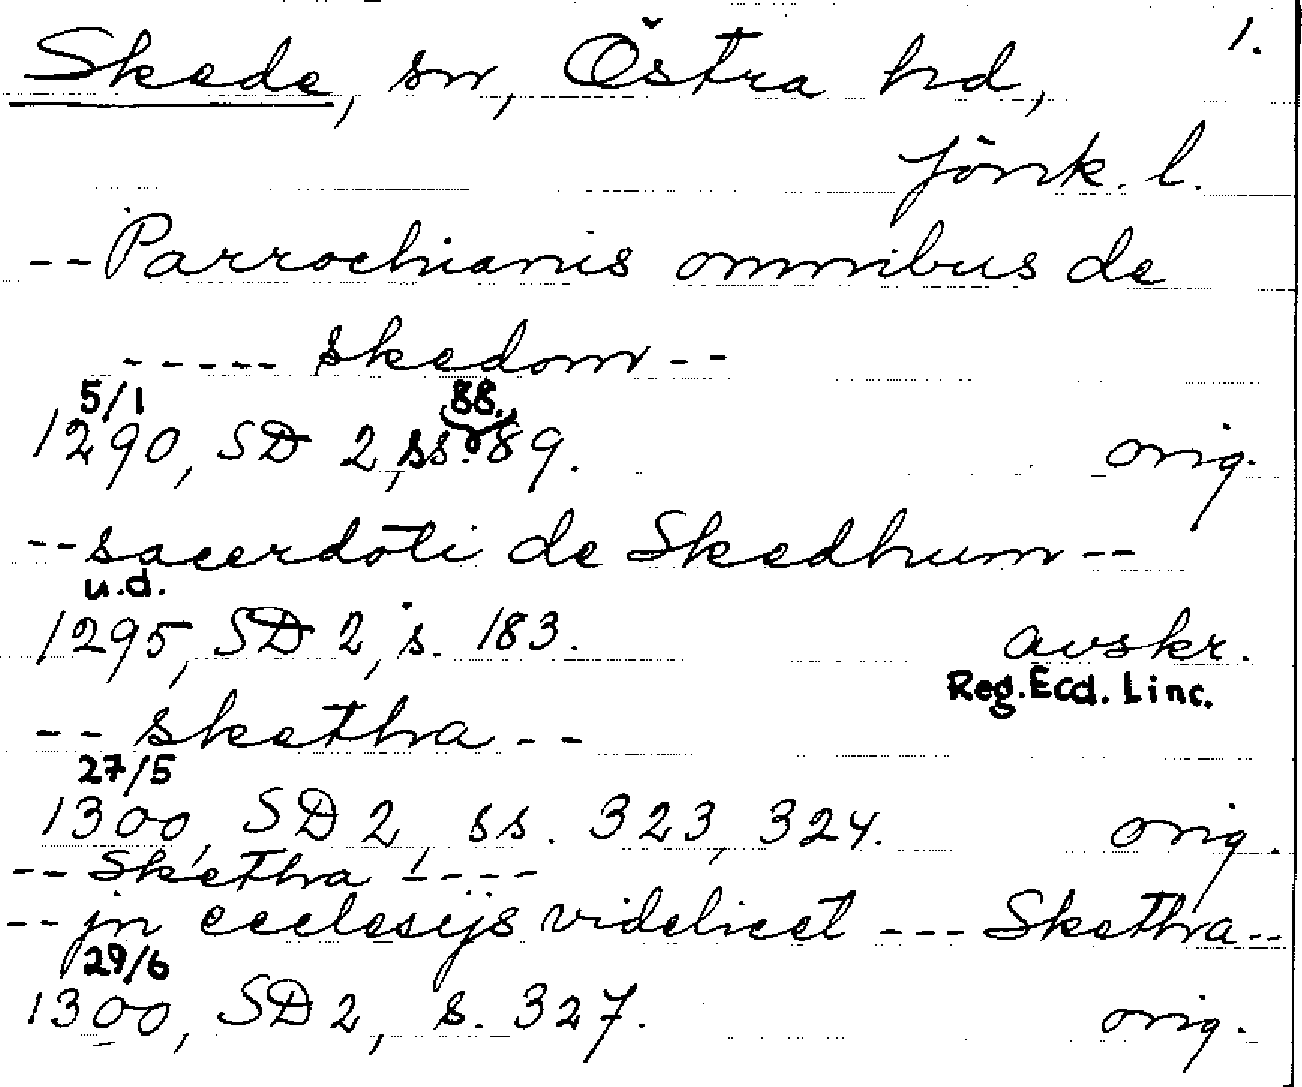 1.
Skede, sn, Östra hd,
Jönk. l.
--Parrochianis omnibus de
----- skedom--
5/1 88.
1290, SD 2, ss. 89. orig.
--sacerdoti de Skedhum--
u.d.
1295, SD 2, s. 183. avskr.
Reg. Eccl. Linc.
-- skethra --
27/5
1300, SD 2, ss. 323, 324. orig.
-- Skethra ----
--jn ecclesijs videlicet --- Skethra--
29/6
1300, SD 2, s. 327. orig.